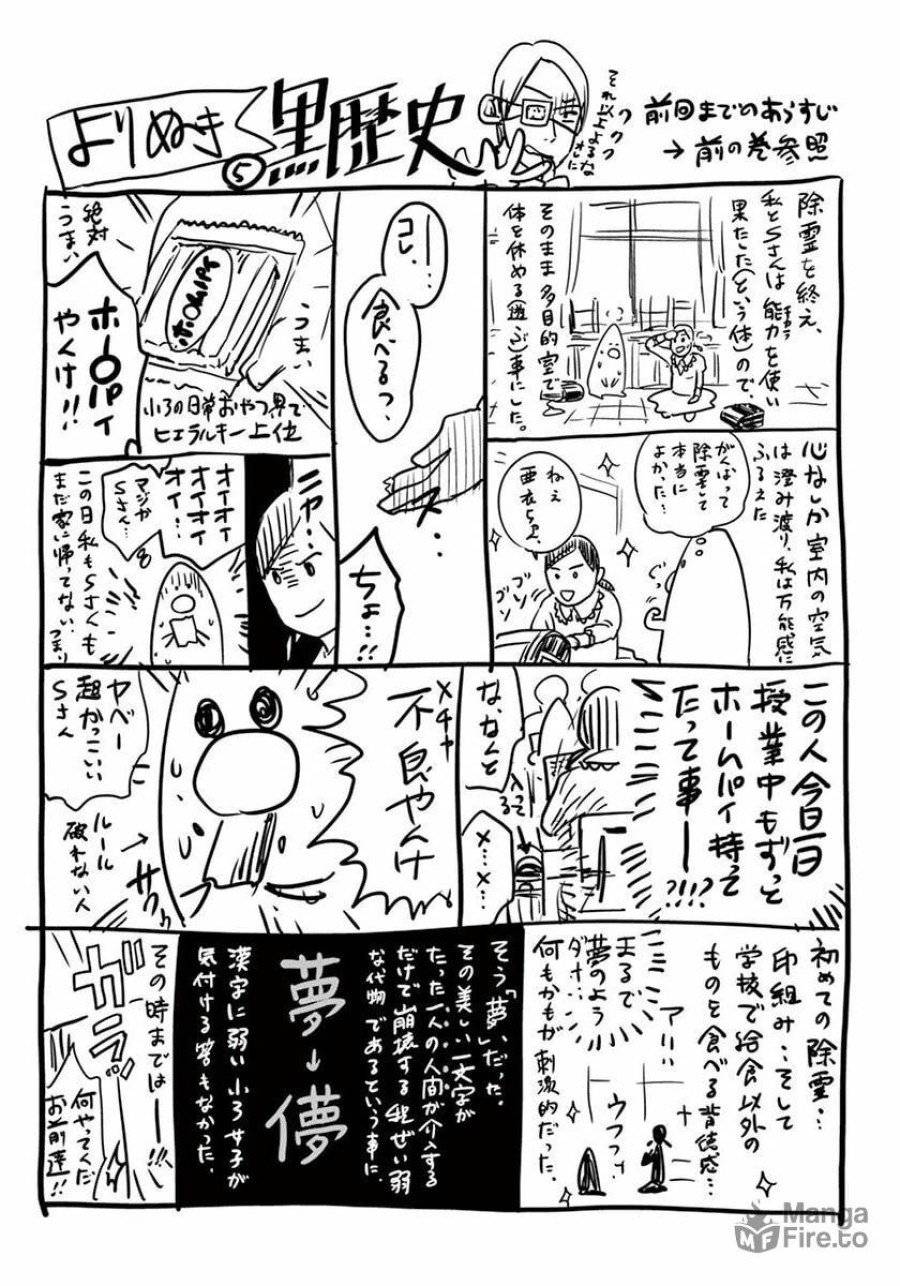 よりぬき
黒歴史
⑤
それ以上よるな
クククク
前回までのあらすじ
→前の巻参照
除霊を終え、
私とSさんは能力を使い
果たした(という体)ので、
そのまま多目的室で
体を休める(遊ぶ)事にした。
心なしか室内の空気
は澄み渡り、私は万能感に
ふるえた
がんばって
除霊して
本当に
よかった…
ねえ
亜衣ちゃん
ゴソ
ゴソ
ス…
食べるっ、
ちょ…!!
うまい
絶対
うまい
ホー〇パイ
やんけ!!
小3の日常おやつ界で
ヒエラルキー上位
ニヤ…
オイオイ
オイオイ
オイ…
マジか
Sさん…
この日私もSさんも
まだ家に帰ってない…つまり
この人今日一日
授業中もずっと
ホームパイ持って
たって事ー?!!?
な、なんと
入ってる
メ…
メ…
メチャ
不良やんけ
ヤベー
超かっこいい
Sさん
ルール
破れない人
サクサク
初めての除霊…
印組み…そして
学校で給食以外の
ものを食べる背徳感…
まるで
夢のよう
ダナ…
アハハ
ウフフ
何もかもが刺激的だった。
そう「夢」だった。
その美しい一文字が
たった一人の人間が介入する
だけで崩壊する程ぜい弱
な代物であるという事に
夢→儚
漢字に弱い小3女子が
気付ける筈もなかった。
その時までは──!!!
ガラッ
何やってんだ
お前達!!
Manga
Fire.to
MF